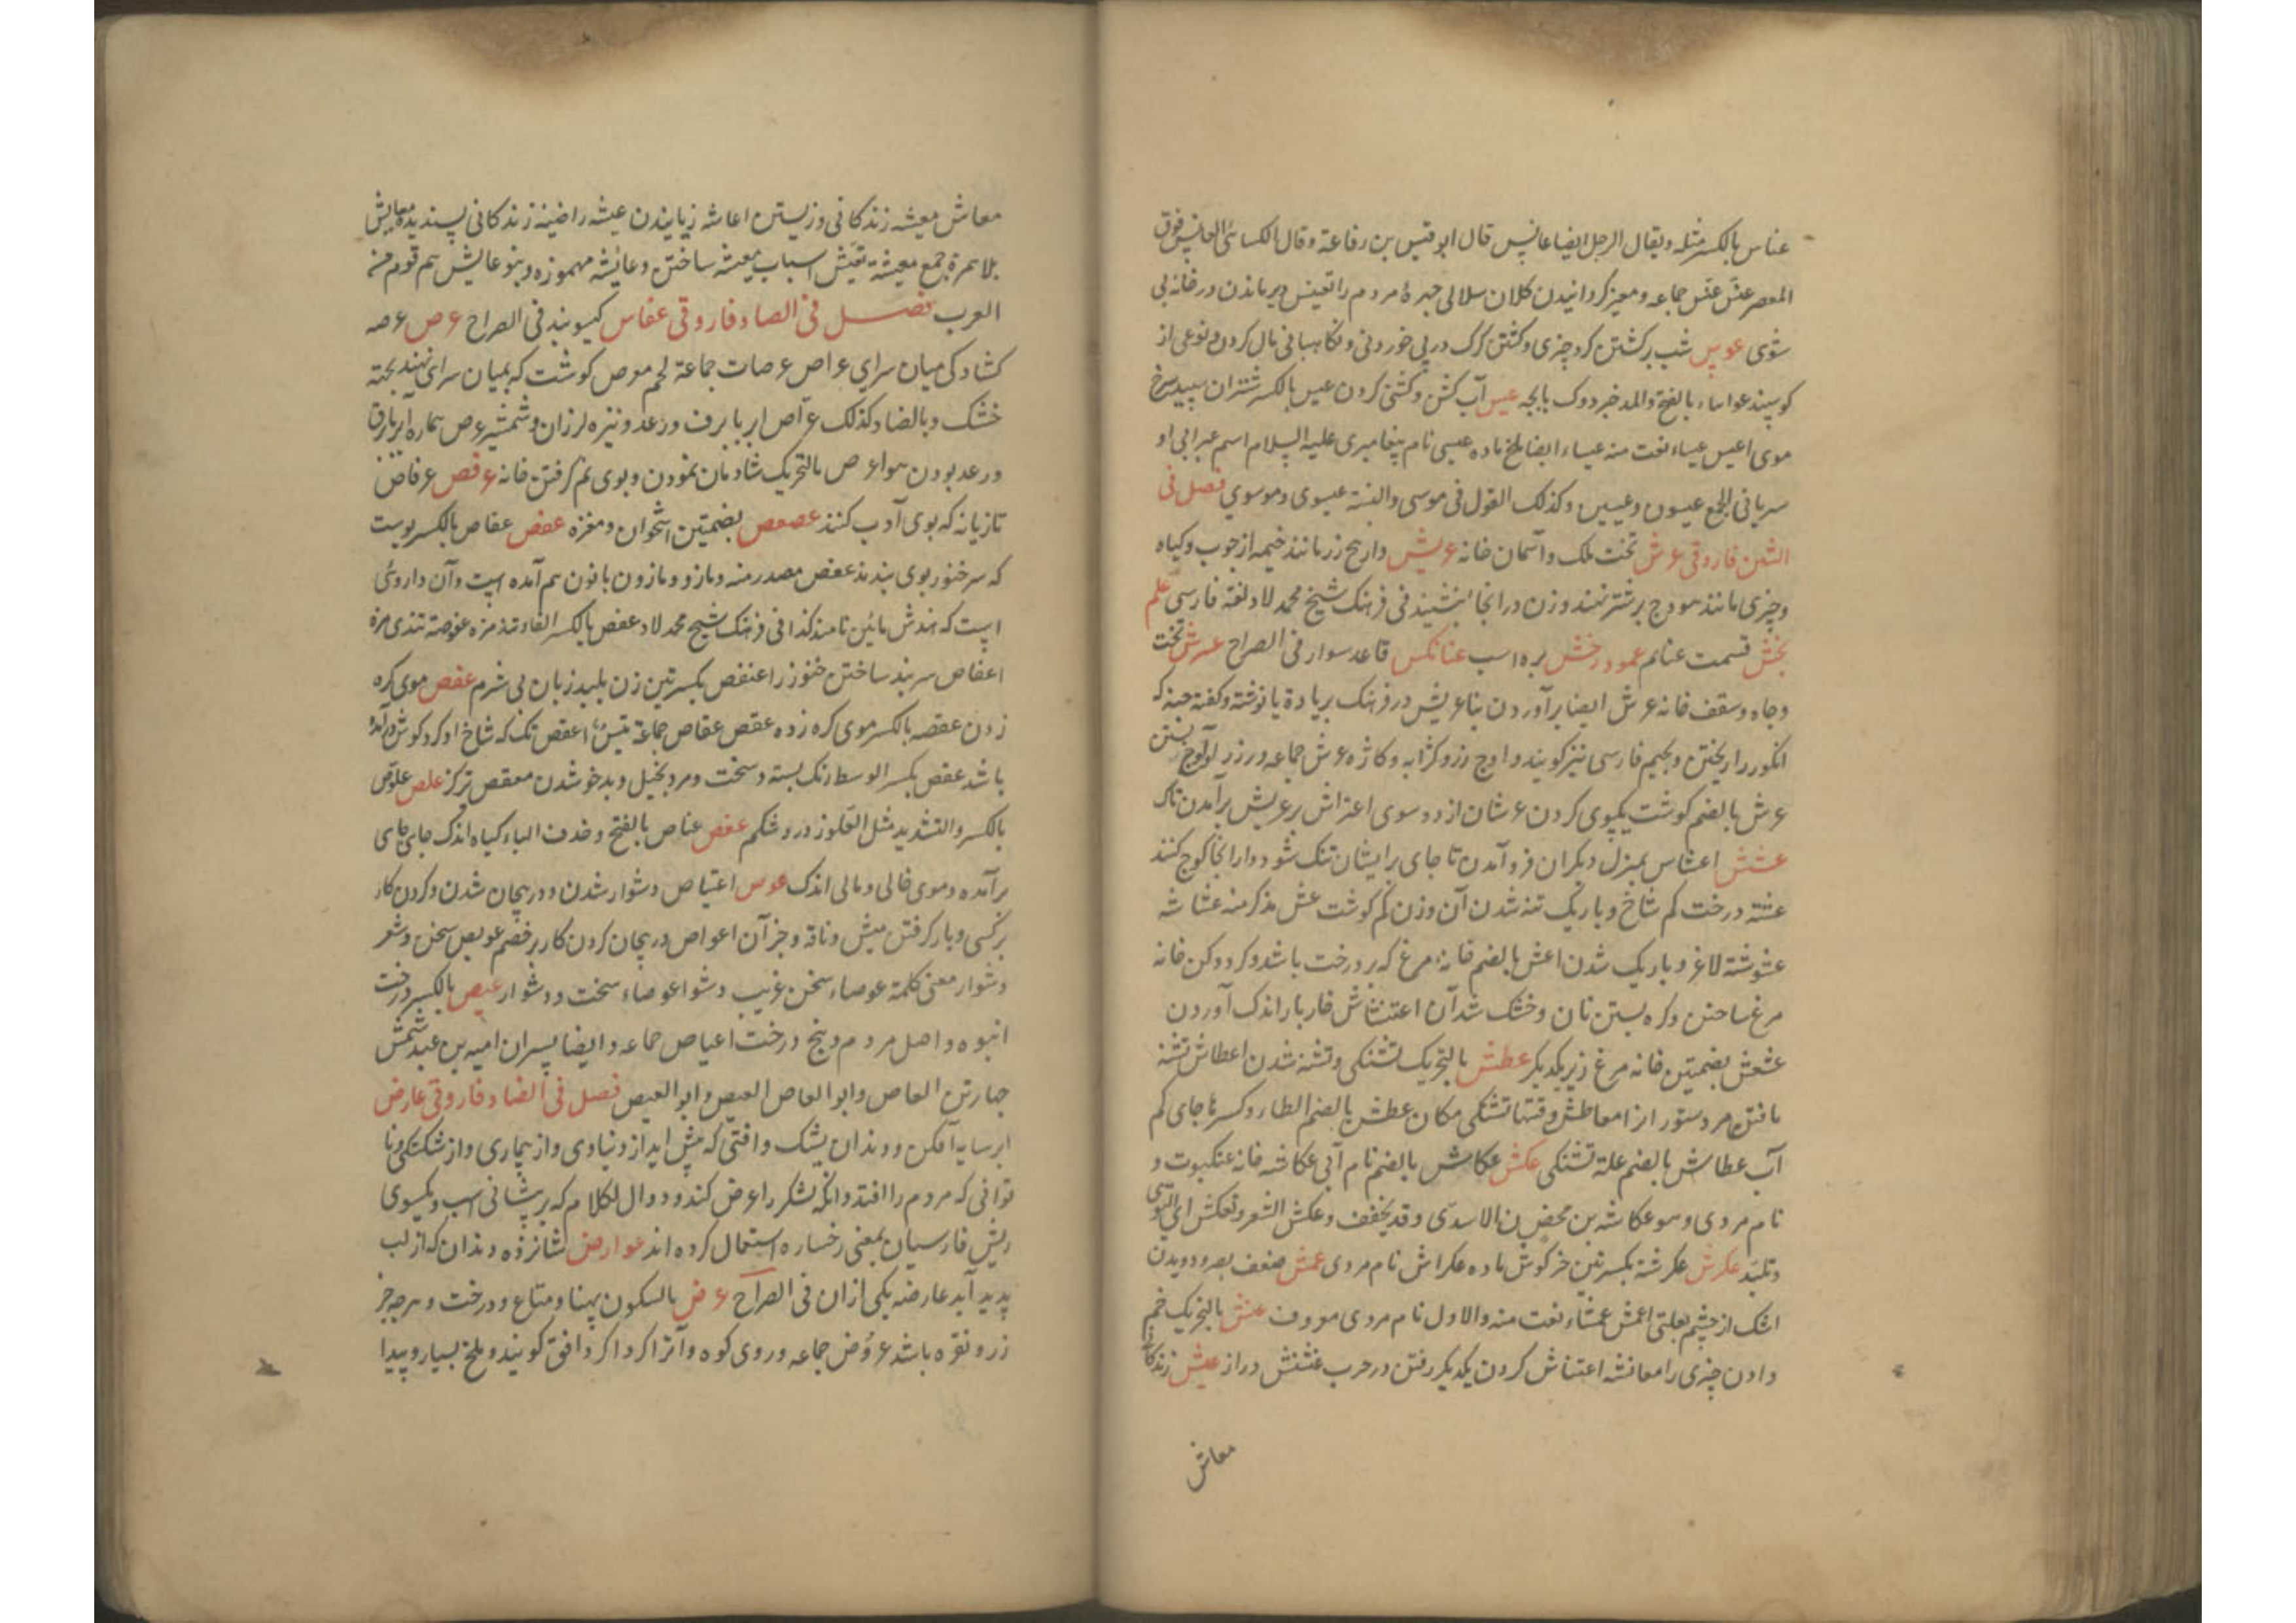 عناس بالکسر مثله ویقال الرجل ایضا عانس قال ابو قیس بن رفاعة وقال الکسائی العانس فوق
المعصر عنس عنس جماعه ومعیز کردانیدن کلان سلالی جهرهٔ مردم را تعنیس دیر ماندن در خانه بی
شوی عوس شب برکشتن کرد چیزی وکشتن کرک در پی خوردنی ونکاهبانی مال کردن ونوعی از
کوسپند عواساء بالفتح والمد خبزدوک بابجه عیس آب کشن وکشنی کردن عیس بالکسر شتران سپید سرخ
موی اعیس عیساء نعت منه عیساء ایضا ملخ ماده عیسی نام پیغامبری علیه السلام اسم عبرانی او
سریانی الجمع عیسون وعیسین وکذلک القول فی موسی والنسبة عیسوی وموسوی فصل فی
الشین فاروقی عرش تخت ملک وآسمان خانه عریش دار بج رز مانند خیمه از چوب وکیاه
وچیزی مانند هودج بر شتر نهند وزن در انجا بنشیند فی فرهنک شیخ محمد لاد لغة فارسی علم
بخش قسمت غنایم عمود رخش بره اسب عنانکس قاعد سوار فی الصراح عرش تخت
وجاه وسقف خانه عرش ایضا برآوردن بنا عریش در فرهنک بریادة یا نوشته وکفته چبنه که
انکور را ریختن وبجیم فارسی نیز کویند واوج رز وکزابه وکاژه عرش جماعه ورزر لولوج بستن
عرش بالضم کوشت یکپوی کردن عرشان از دو سوی اعتراش بر عریش برآمدن تاک
عشش اعشاس بمنزل دیکران فروآمدن تا جای برایشان تنک شود واز انجا کوچ کنند
عشته درخت کم شاخ وباریک تنه شدن آن وزن کم کوشت عش مذکر منه عشاشه
عشوشة لاغر وباریک شدن اعش بالضم خانه مرغ که بر درخت باشد وکرد وکن خانه
مرغ ساختن وکره بستن نان وخشک شدآن اعتشاش خاربار اندک آوردن
عشعش بضمتین خانه مرغ زیر یکدیکر عطش بالتحریک تشنکی وتشنه شدن اعطاش تشنه
یافتن مردستور از امعاطش وقتها تشنکی مکان عطش بالضم الطاء وکسرها جای کم
آب عطاش بالضم علة تشنکی عکش عکاش بالضم نام آبی عکاشه خانه عنکبوت و
نام مردی وهو عکاشه بن محض ن الاسدی وقد یخفف وعکش الشعر وتعکش ای التوی
وتلبد عکرش عکرشة بکسرتین خرکوش ماده عکراش نام مردی عمش ضعف بصر ودویدن
اشک از چشم بعلتی اعمش عمشاء نعت منه والاول نام مردی معروف عنش بالتحریک خم
دادن چیزی را معانشه اعتناش کردن یکدیکر رفتن در حرب عنشنش دراز عیش زندکانی
معاش
معاش معیشه زندکانی وزیستن اعاشه زیانیدن عیشه راضیه زندکانی پسندیده معایش
بلا همزة جمع معیشة تعیش اسباب معیشه ساختن وعائشه مهموزه وبنو عایش هم قوم من
العرب فصل فی الصاد فاروقی عفاس کیو بند فی الصراح عرص عرصه
کشادکی میان سرای عراص عرصات جماعة لحم معرص کوشت که بمیان سرای نهند بجته
خشک وبالضاد کذلک عراص ابر با برف ورعد ونیزه لرزان وشمشیر عرص بهاره ابر بابرق
ورعد بودن هوا عرص بالتحریک شادمان نمودن وبوی نم کرفتن خانه عرفص عرفاص
تازیانه که بوی آدب کنند عصعص بضمتین استخوان دمغزه عفص عفاص بالکسر پوست
که سر خنور بوی بندند عفص مصدر منه ومازو ومازون بانون هم آمده است وآن داروئی
است که هندش مائین نامند کذا فی فرهنک شیخ محمد لاد عفص بالکسر الفاء تند مزه عفوصة تندی مزه
اعفاص سربند ساختن خنور را عنفص بکسرتین زن بلید زبان بی شرم عقص موی کره
زدن عقصه بالکسر موی کره زده عقص عقاص جماعة تیس اعقص تکه که شاخ او کرد کوش درآمده
باشد عقص بکسر الوسط رنک بسته وسخت ومرد بخیل وبدخو شدن معقص ترکز علص علوص
بالکسر والتشدید مثل القلوز درد شکم عنص عناص بالفتح وحذف الیاء کیاه اندک جای جای
برآمده وموی خالی ومالی اندک عوس اعتیاص دشوار شدن ودرپیچان شدن وکردن کار
برکسی وبار کرفتن میش وناقه وجز آن اعواص درپیچان کردن کار بر خصم عویص سخن وشعر
دشوار معنی کلمة عوصاء سخن غریب دشوا عوصاء سخت ودشوار عیص بالکسر درخت
انبوه واصل مردم وبیخ درخت اعیاص جماعه وایضا پسران امیه بن عبد شمس
چهار تن العاص وابو العاص العیص وابو العیص فصل فی الضاد فاروقی عارض
ابر سایه آفکن ودندان پیشک وآفتی که پیش آید از دنیاوی واز بیماری واز شکستکی ونا
توانی که مردم را افتد وانکه لشکر را عرض کند ودوال لکلام که بر پیشانی اسب ویکسوی
ریش فارسیان بمعنی رخساره استعمال کرده اند عوارض شانزده دندان که از لب
پدید آید عارضه یکی از ان فی الصراح عرض بالسکون پهنا ومتاع ودرخت وهرچه جز
زر ونقره باشد عروض جماعه وروی کوه وآنرا کرداکرد افق کویند وملخ بسیار وپیدا